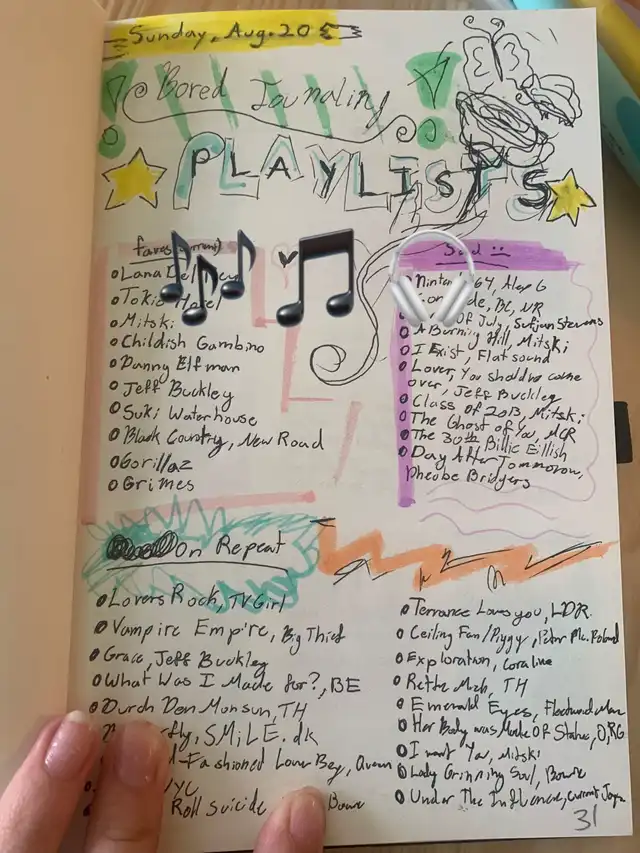 Sunday, Aug. 20
Bored Journaling
PLAYLISTS
faves
Lana Del
Tokio Hotel
Mitski
Childish Gambino
Danny Elfman
Jeff Buckley
Suki Waterhouse
Black Country, New Road
Gorillaz
Grimes
Sad
64, Alex G
BC, NR
of July, Sufjan Stevens
A Burning Hill, Mitski
I Exist, Flatsound
Lover, You should've come
over, Jeff Buckley
Class of 2013, Mitski
The Ghost of You, MCR
The 30th Billie Eillish
Day After Tommorow,
Pheobe Bridgers
On Repeat
Lovers Rock, TV Girl
Vampire Empire, Big Thief
Grace, Jeff Buckley
What Was I Made for?, BE
Durch Den Monsun, TH
fly, SMiLE.dk
Fashioned Lover Boy,
NYC
Roll Suicide Bowie
Terrance Loves you, LDR
Ceiling Fan/Piggy,
Exploration, Coraline
Rette Mich, TH
Emerald Eyes, Fleetwood Mac
Her Body was Made Of
I want You, Mitski
Lady Grinning Soul, Bowie
Under The Influence, Current Joys
31